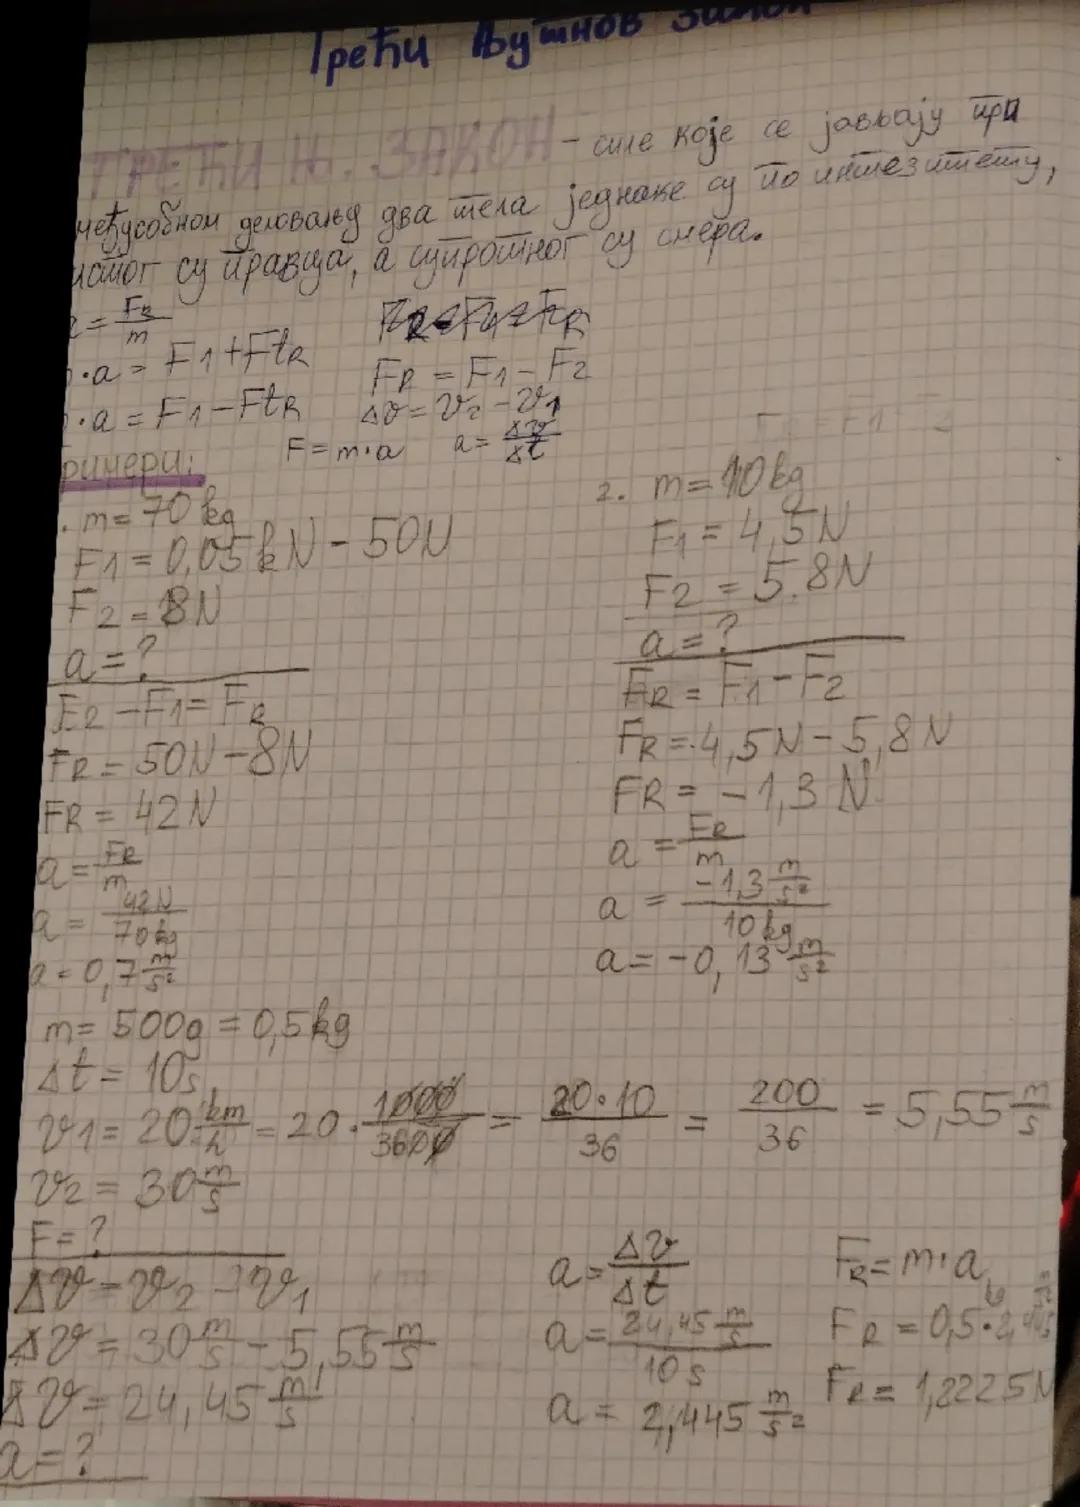 Трећи Њутнов закон
ТРЕЋИ Њ. ЗАКОН - силе које се јављају при
међусобном деловању два тела једнаке су по интезитету,
истог су правца, а супротног су смера.
a = FR/m
m·a = F1 + FtR
FR = F1 - F2
m·a = F1 - FtR
Δv = v2 - v1
F = m·a a = Δv/Δt
Примери:
1. m = 70 kg
F1 = 0,05 kN - 50N
F2 = 8N
a = ?
F2 - F1 = FR
FR = 50N - 8N
FR = 42N
a = FR/m
a = 42N/70kg
a = 0,7 m/s²
2. m = 10 kg
F1 = 4,5N
F2 = 5.8N
a = ?
FR = F1 - F2
FR = 4,5N - 5,8N
FR = -1,3 N
a = FR/m
a = -1,3 m/s² / 10 kg
a = -0,13 m/s²
m = 500g = 0,5 kg
Δt = 10s
v1 = 20 km/h = 20 · 1000/3600 = 20·10/36 = 200/36 = 5,55 m/s
v2 = 30 m/s
F = ?
Δv = v2 - v1
Δv = 30 m/s - 5,55 m/s
Δv = 24,45 m/s
a = ?
a = Δv/Δt
a = 24,45 m/s / 10 s
a = 2,445 m/s²
FR = m·a
FR = 0,5 kg · 2,445
FR = 1,2225N